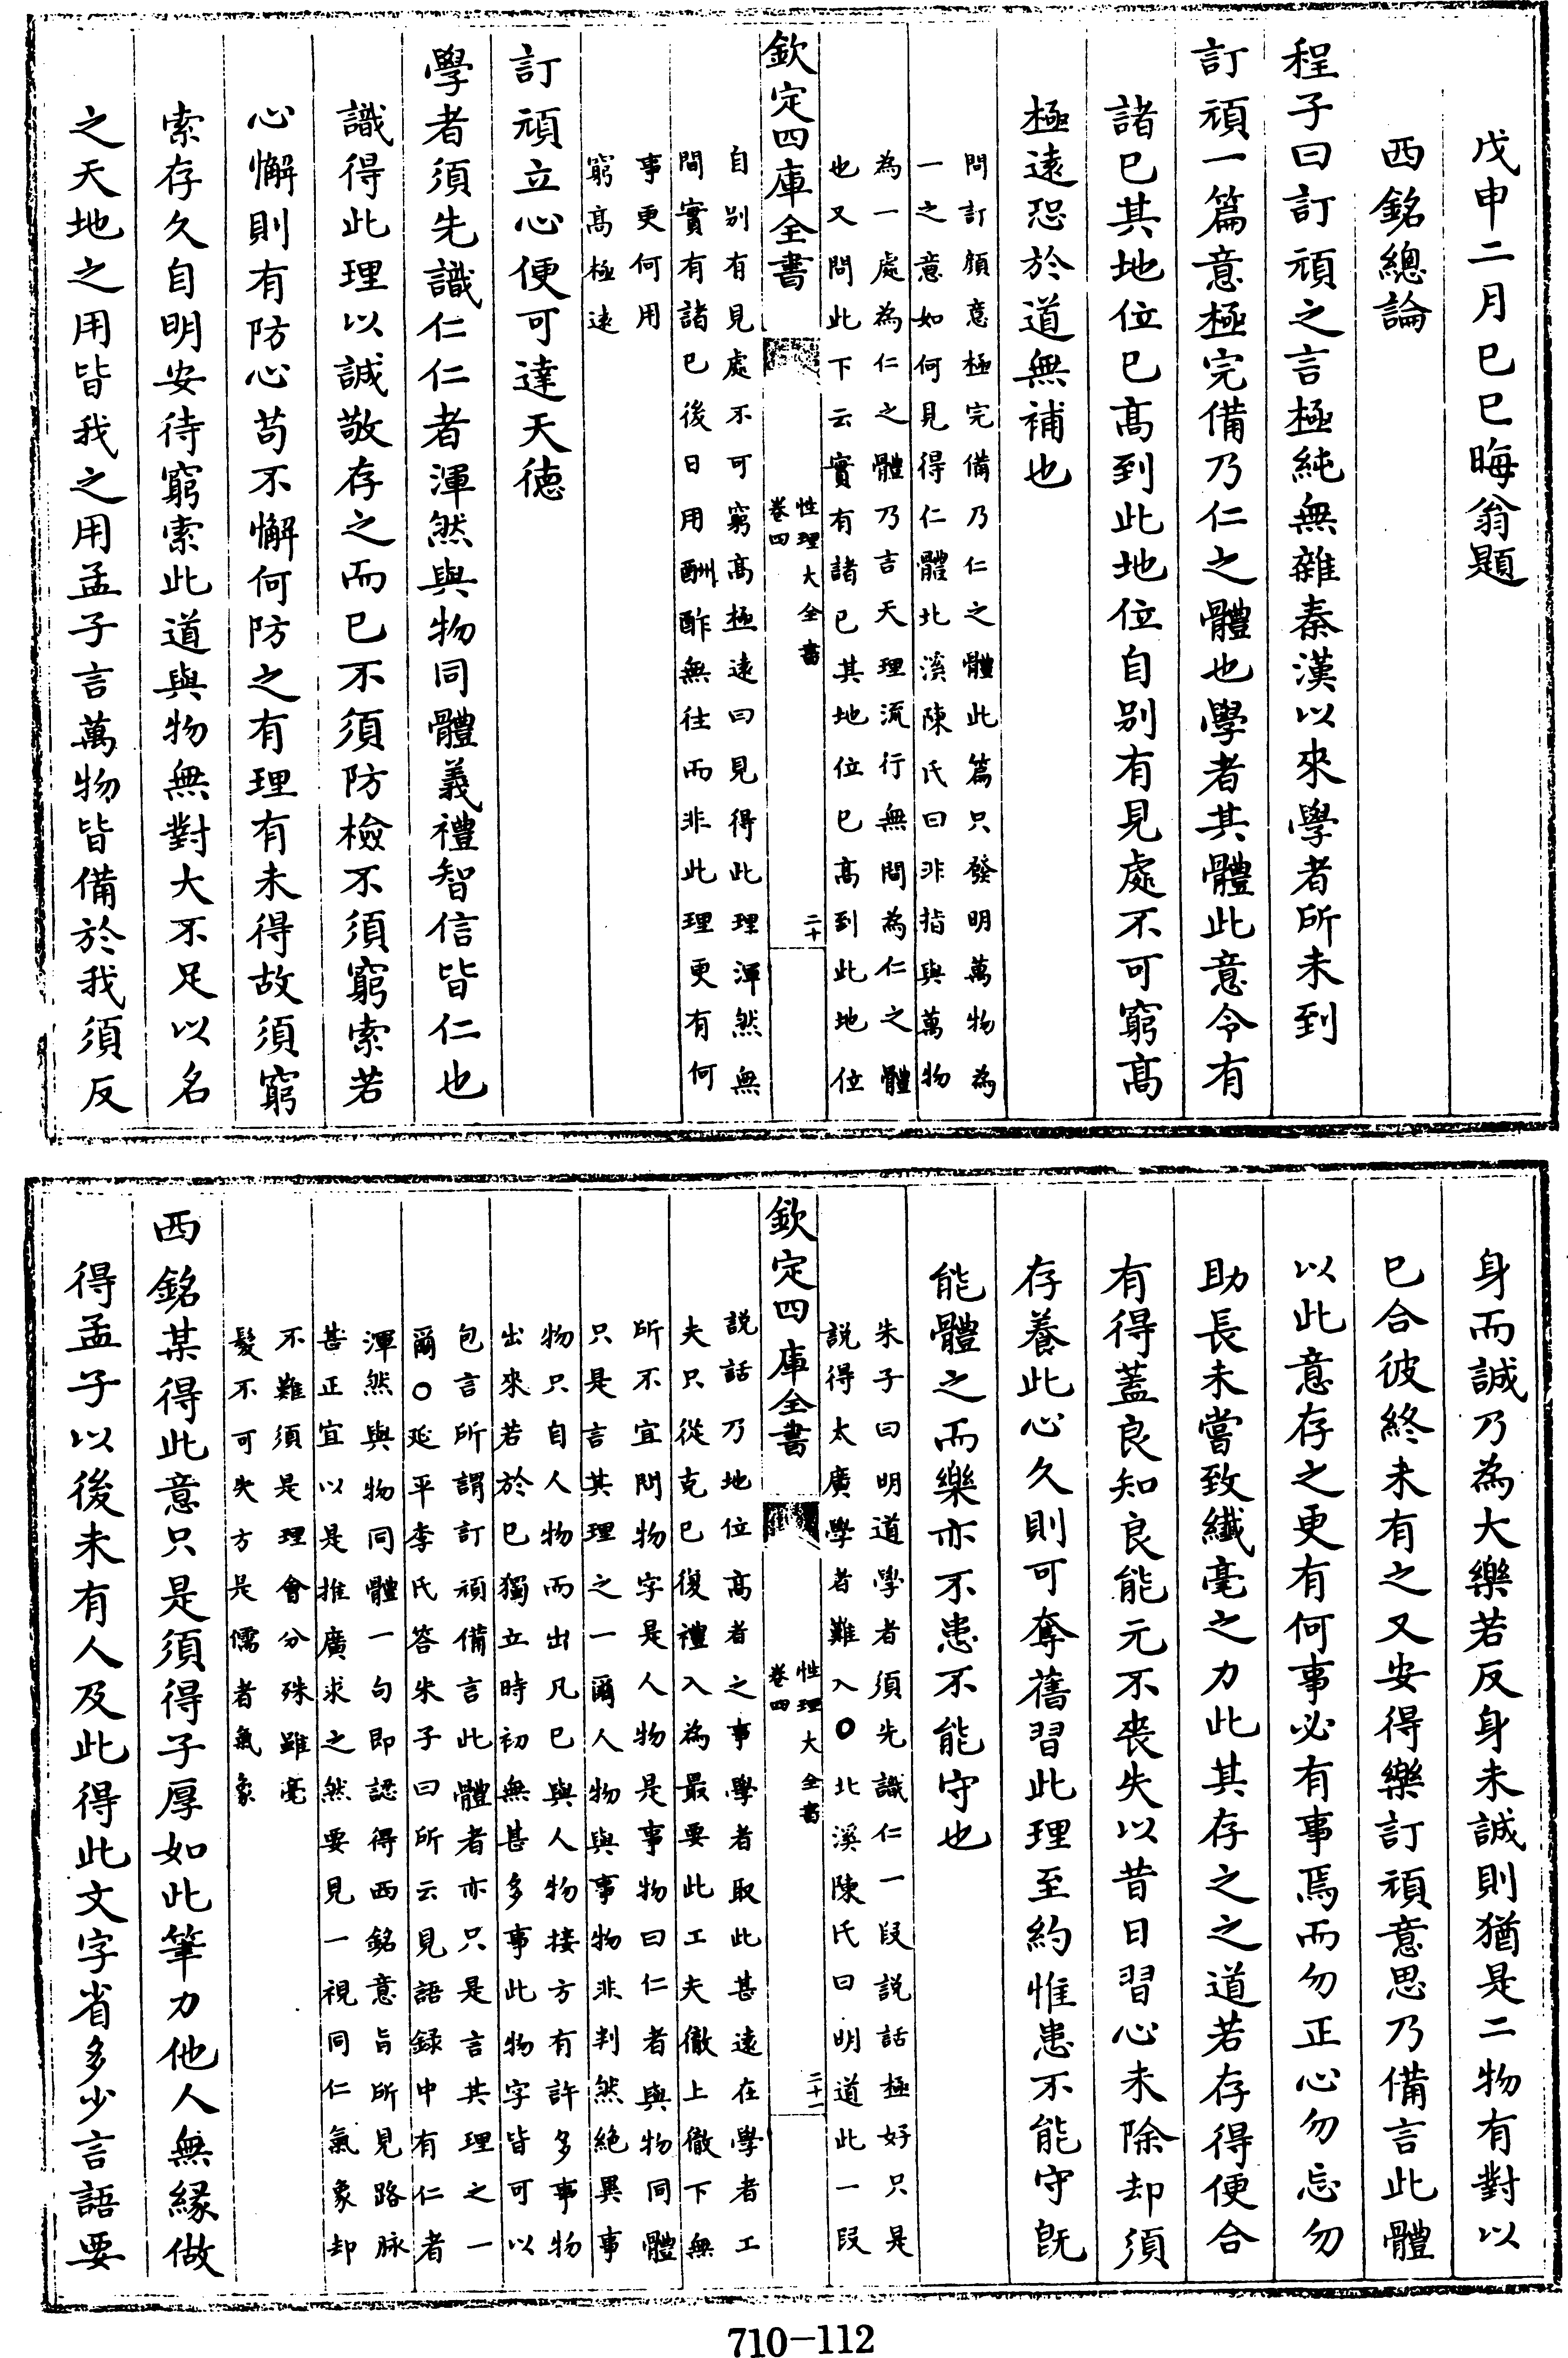 戊申二月己巳晦翁題
西銘總論
程子曰訂頑之言極純無雜秦漢以來學者所未到
訂頑一篇意極完備乃仁之體也學者其體此意令有
諸己其地位已高到此地位自别有見處不可窮高
極遠恐於道無補也
問訂頑意極完備乃仁之體此篇只發明萬物為
一之意如何見得仁體北溪陳氏曰非指與萬物
為一處為仁之體乃言天理流行無間為仁之體
也又問此下云實有諸己其地位已高到此地位
欽定四庫全書
性理大全書
卷四
二十
自别有見處不可窮高極遠曰見得此理渾然無
間實有諸己後日用酬酢無往而非此理更有何
事更何用
窮高極遠
訂頑立心便可達天德
學者須先識仁仁者渾然與物同體義禮智信皆仁也
識得此理以誠敬存之而已不須防檢不須窮索若
心懈則有防心苟不懈何防之有理有未得故須窮
索存久自明安待窮索此道與物無對大不足以名
之天地之用皆我之用孟子言萬物皆備於我須反
身而誠乃為大樂若反身未誠則猶是二物有對以
己合彼終未有之又安得樂訂頑意思乃備言此體
以此意存之更有何事必有事焉而勿正心勿忘勿
助長未嘗致纎毫之力此其存之之道若存得便合
有得蓋良知良能元不喪失以昔日習心未除却須
存養此心久則可奪舊習此理至約惟患不能守既
能體之而樂亦不患不能守也
朱子曰明道學者須先識仁一段説話極好只是
説得太廣學者難入○北溪陳氏曰明道此一段
欽定四庫全書
性理大全書
卷四
二十一
説話乃地位高者之事學者取此甚遠在學者工
夫只從克己復禮入為最要此工夫徹上徹下無
所不宜問物字是人物是事物曰仁者與物同體
只是言其理之一爾人物與事物非判然絶異事
物只自人物而出凡己與人物接方有許多事物
出來若於己獨立時初無甚多事此物字皆可以
包言所謂訂頑備言此體者亦只是言其理之一
爾○延平李氏答朱子曰所云見語録中有仁者
渾然與物同體一句即認得西銘意旨所見路脉
甚正宜以是推廣求之然要見一視同仁氣象却
不難須是理會分殊雖毫
髮不可失方是儒者氣象
西銘某得此意只是須得子厚如此筆力他人無緣做
得孟子以後未有人及此得此文字省多少言語要
710-112